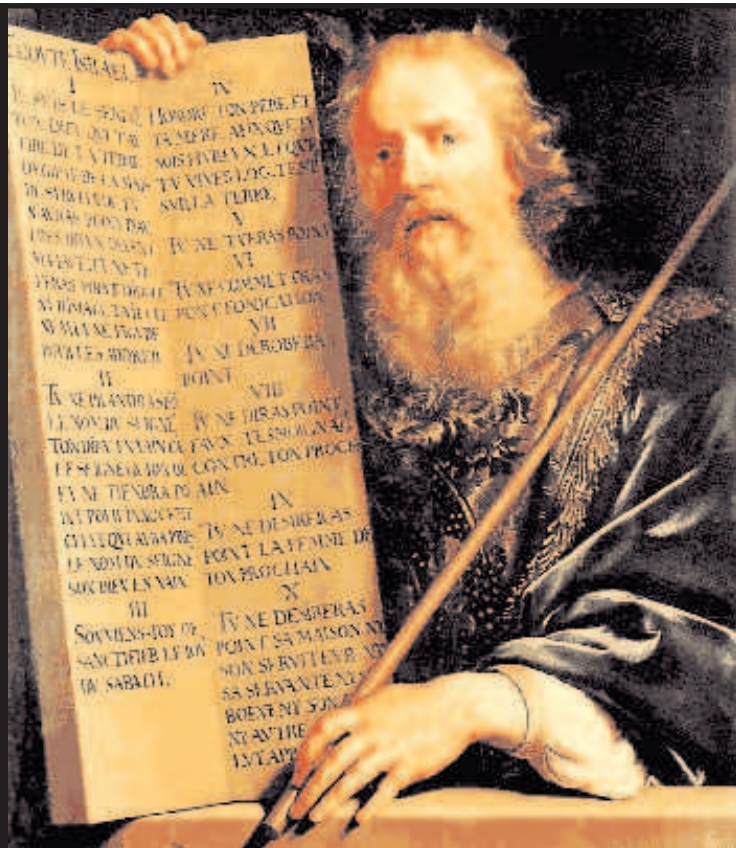 ECOVTE ISRAEL
I
IE SVIS LE SEIGNE
TON DIEV QVI T'AI
TIRE DE LA TERRE
D'EGIPTE DE LA MAIS
DE SERVITVDE TV
N'AVRAS POINT D'AV
TRES DIEVX DEVANT
MA FACE ET NE TE
FERAS POINT D'IDOLE
NY IMAGE TAILLEE
NY AVCVNE FIGVRE
POVR LES ADORER
II
TV NE PRANDRAS P
LE NOM DV SEIGNE
TON DIEV EN VAIN CE
LE SEIGNEVR TON DI
NE TIENDRA PO
INT POVR INNOCENT
CELVI QVI AVRA PRIS
LE NOM DV SEIGNE
SON DIEV EN VAIN
III
SOVVIENS-TOY DE
SANCTIFIER LE IOV
DV SABATH.
IV
HONORE TON PERE ET
TA MERE AFIN QVE TV
SOIS HEVREVX ET QVE
TV VIVES LOG-TEMS
SVR LA TERRE.
V
TV NE TVERAS POINT
VI
TV NE COMMETTRAS
POINT FORNICATION
VII
TV NE DEROBERAS
POINT
VIII
TV NE DIRAS POINT,
FAVX TESMOIGNAG
CONTRE TON PROCH
AIN
IX
TV NE DESIRERAS
POINT LA FEMME DE
TON PROCHAIN
X
TV NE DESIRERAS
POINT SA MAISON NY
SON SERVITEVR NY
SA SERVANTE NY S
BOEVF NY SON A
NY AVTRE
LVY APP